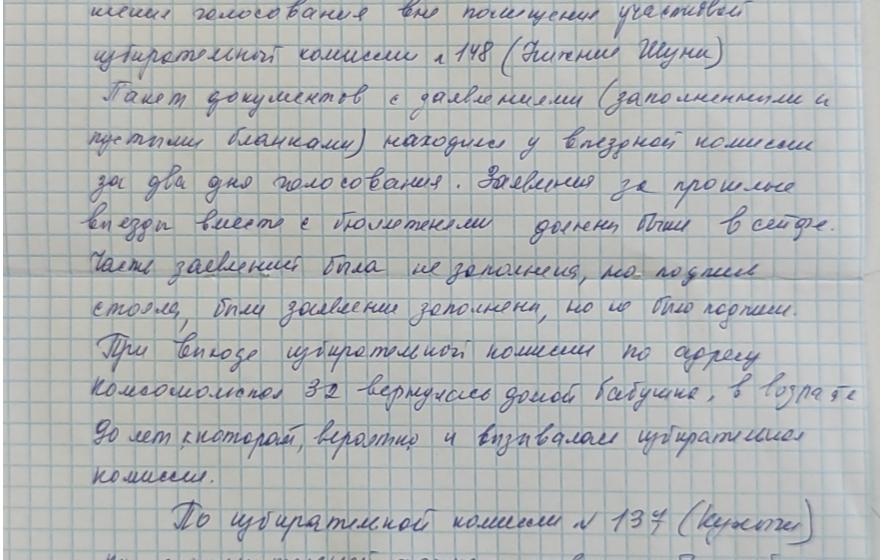 голосования вне помещения участковой
избирательной комиссии № 148 (Нижние Шуни)
Пакет документов с заявлениями (заполненными и
пустыми бланками) находился у выездной комиссии
за два дня голосования. Заявления за прошлые
выезды вместе с бюллетенями должны были в сейфе.
Часть заявлений была не заполнена, но подпись
стояла, были заявление заполнены, но не было подписи.
При выходе избирательной комиссии по адресу
Комсомольская 32 вернулась домой бабушка, в возрасте
лет, к которой, вероятно и вызывалась избирательная
комиссия.
По избирательной комиссии № 137